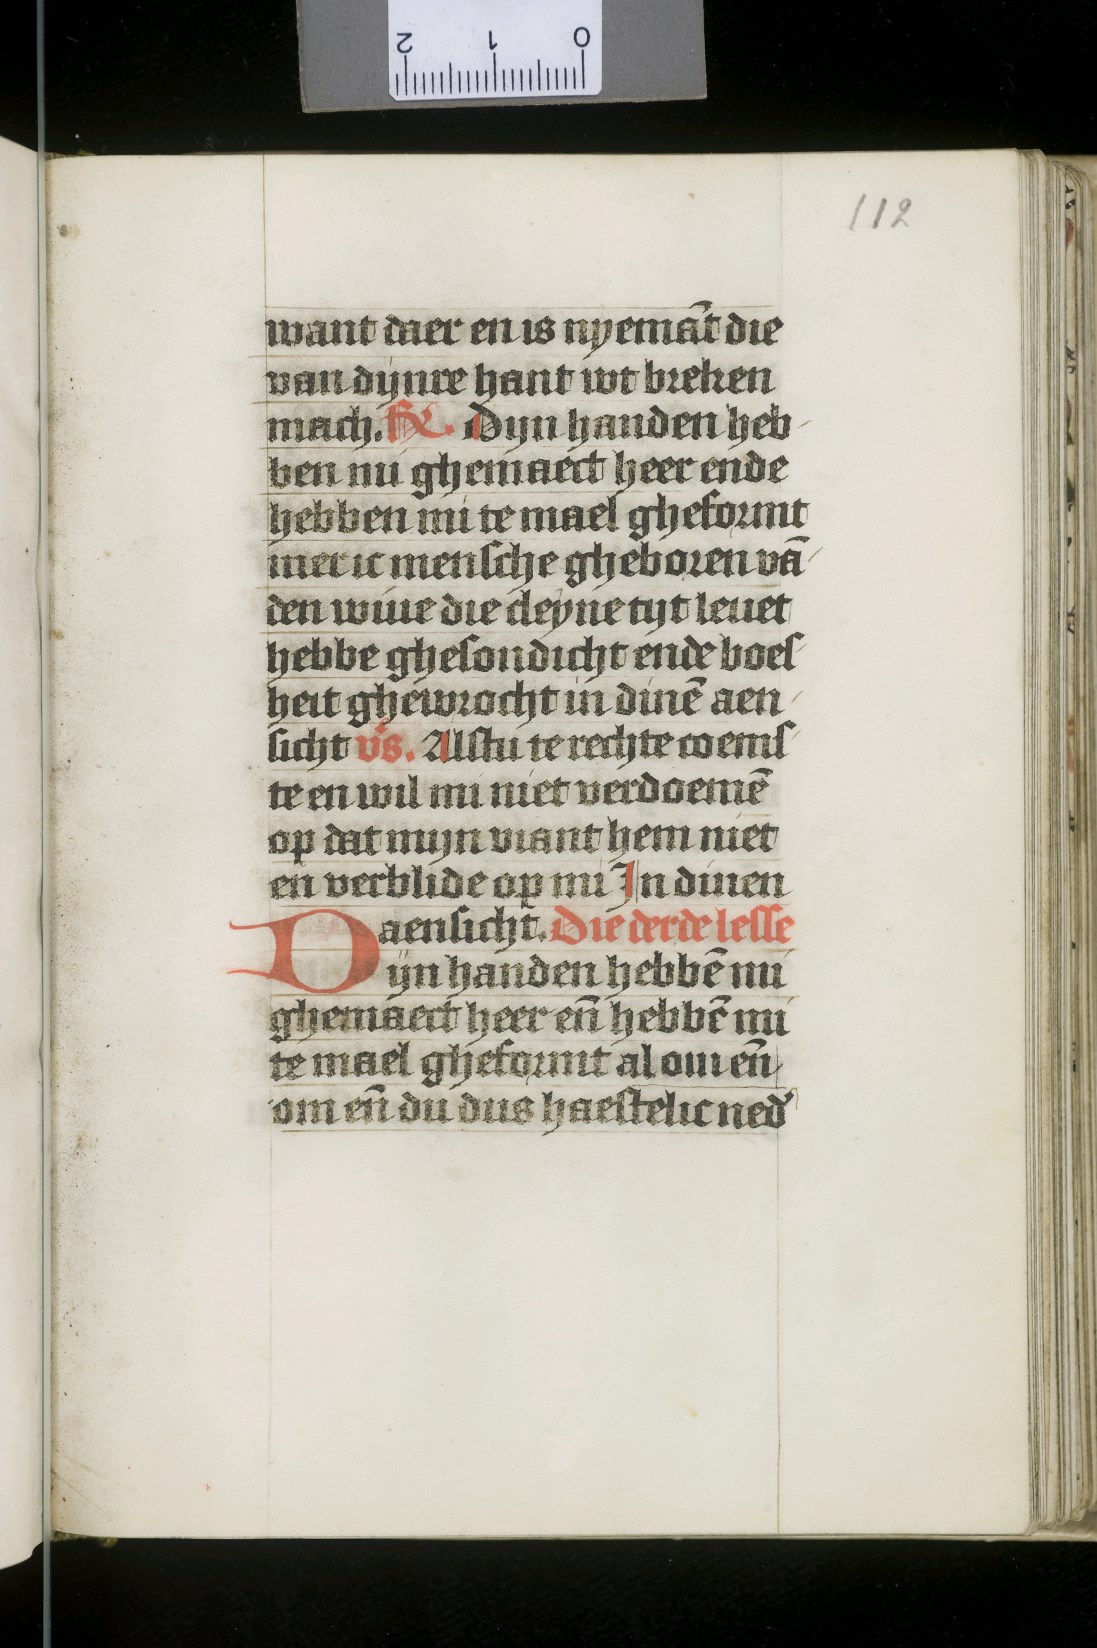 2 1 0
112
want daer en is nyemāt die
van dijnre hant wt breken
mach. R. Dijn handen heb-
ben mi ghemaect heer ende
hebben mi te mael gheformt
mer ic mensche gheboren vā-
den wiue die cleyne tijt leuet
hebbe ghesondicht ende boes-
heit ghewrocht in dinē aen-
sicht vs. Alstu te rechte coems-
te en wil mi niet verdoemē
op dat mijn viant hem niet
en verblide op mi In dinen
aensicht. Die derde lesse
Dijn handen hebbē mi
ghemaect heer eñ hebbē mi
te mael gheformt al om eñ
om eñ du dus haestelic ned'